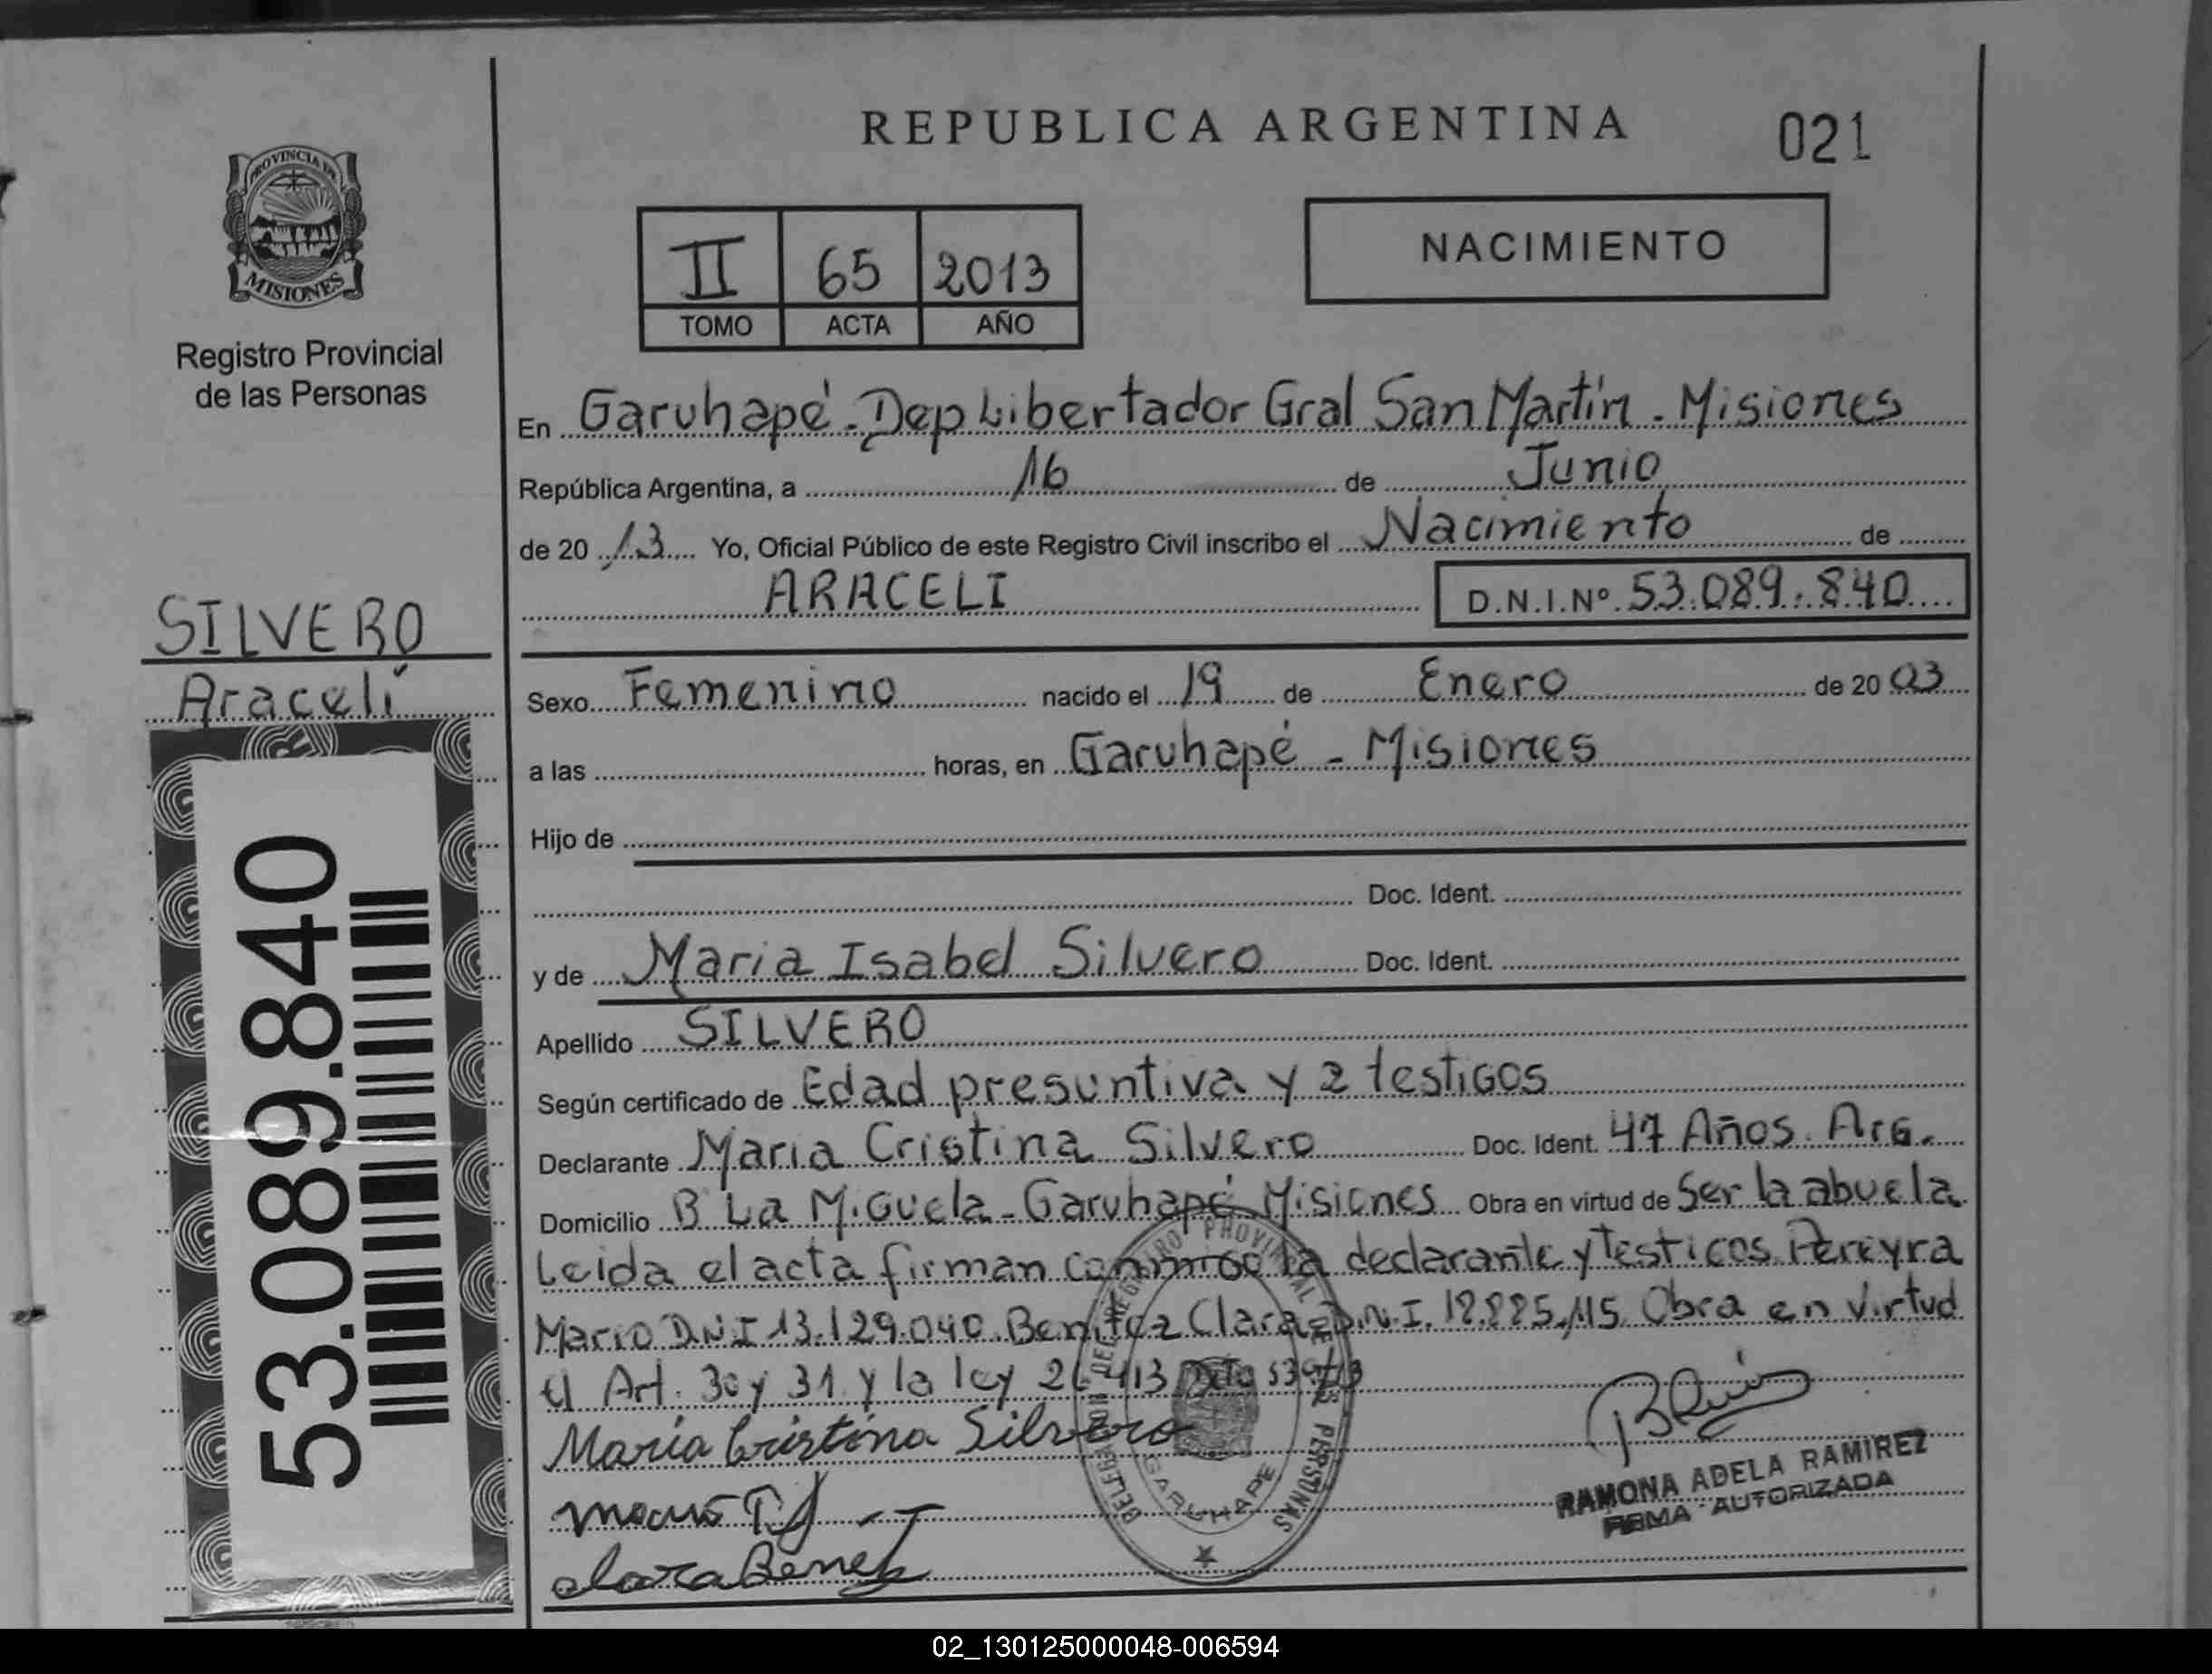 REPUBLICA ARGENTINA
021
PROVINCIA DE
MISIONES
Registro Provincial
de las Personas
II 65 2013
TOMO ACTA AÑO
NACIMIENTO
En Garuhapé - Dep Libertador Gral San Martín - Misiones
República Argentina, a 16 de Junio
de 20 13 Yo, Oficial Público de este Registro Civil inscribo el Nacimiento de
ARACELI
D.N.I.Nº 53.089.840
SILVERO
Araceli
53.089.840
Sexo Femenino nacido el 19 de Enero de 20 03
a las horas, en Garuhapé - Misiones
Hijo de
Doc. Ident.
y de Maria Isabel Silvero Doc. Ident.
Apellido SILVERO
Según certificado de Edad presuntiva y 2 testigos
Declarante Maria Cristina Silvero Doc. Ident. 47 Años. Arg.
Domicilio B° La Miguela - Garuhapé Misiones Obra en virtud de Ser la abuela
Leida el acta firman conmigo la declarante y Testigos Pereyra
Mario D.N.I 13.129.040. Benitez Clara D.N.I. 18.885.115. Obra en virtud
el Art. 30 y 31 y la ley 26413
María Cristina Silvero
RAMONA ADELA RAMIREZ
FIRMA AUTORIZADA
DELEGACION DEL REGISTRO PROVINCIAL DE LAS PERSONAS
GARUHAPE
02_130125000048-006594